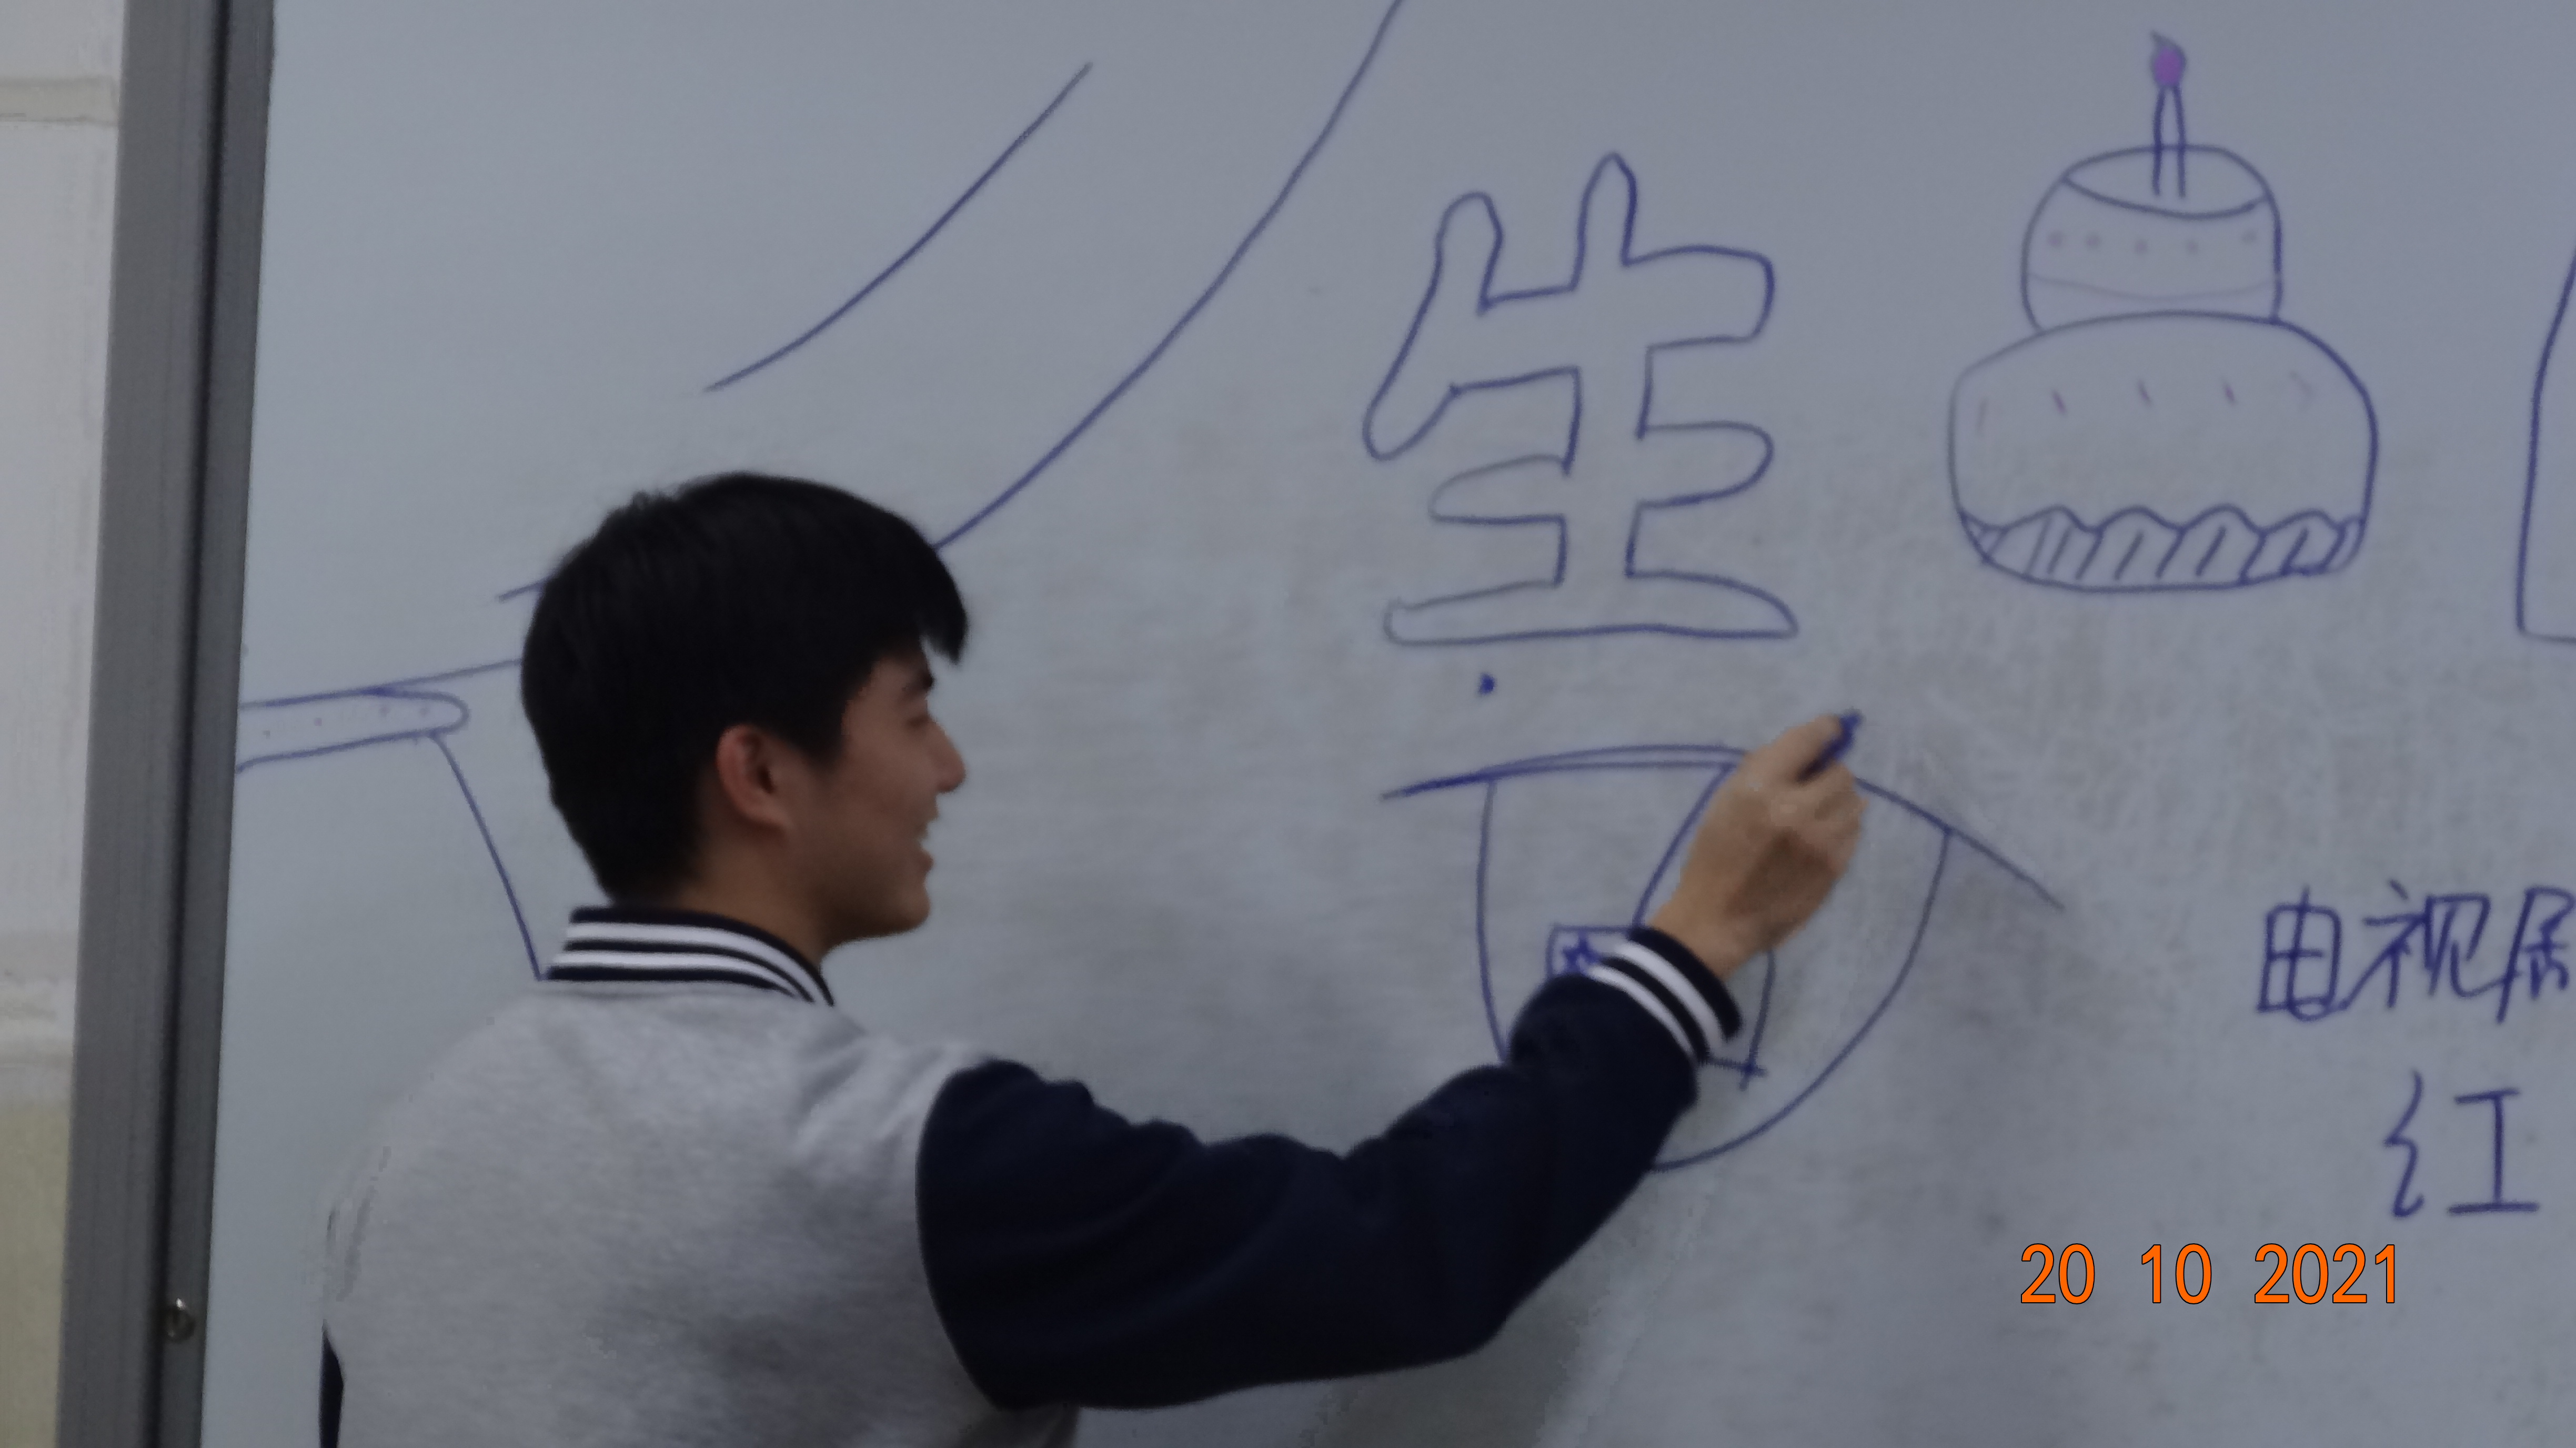 生
电视
红
20 10 2021